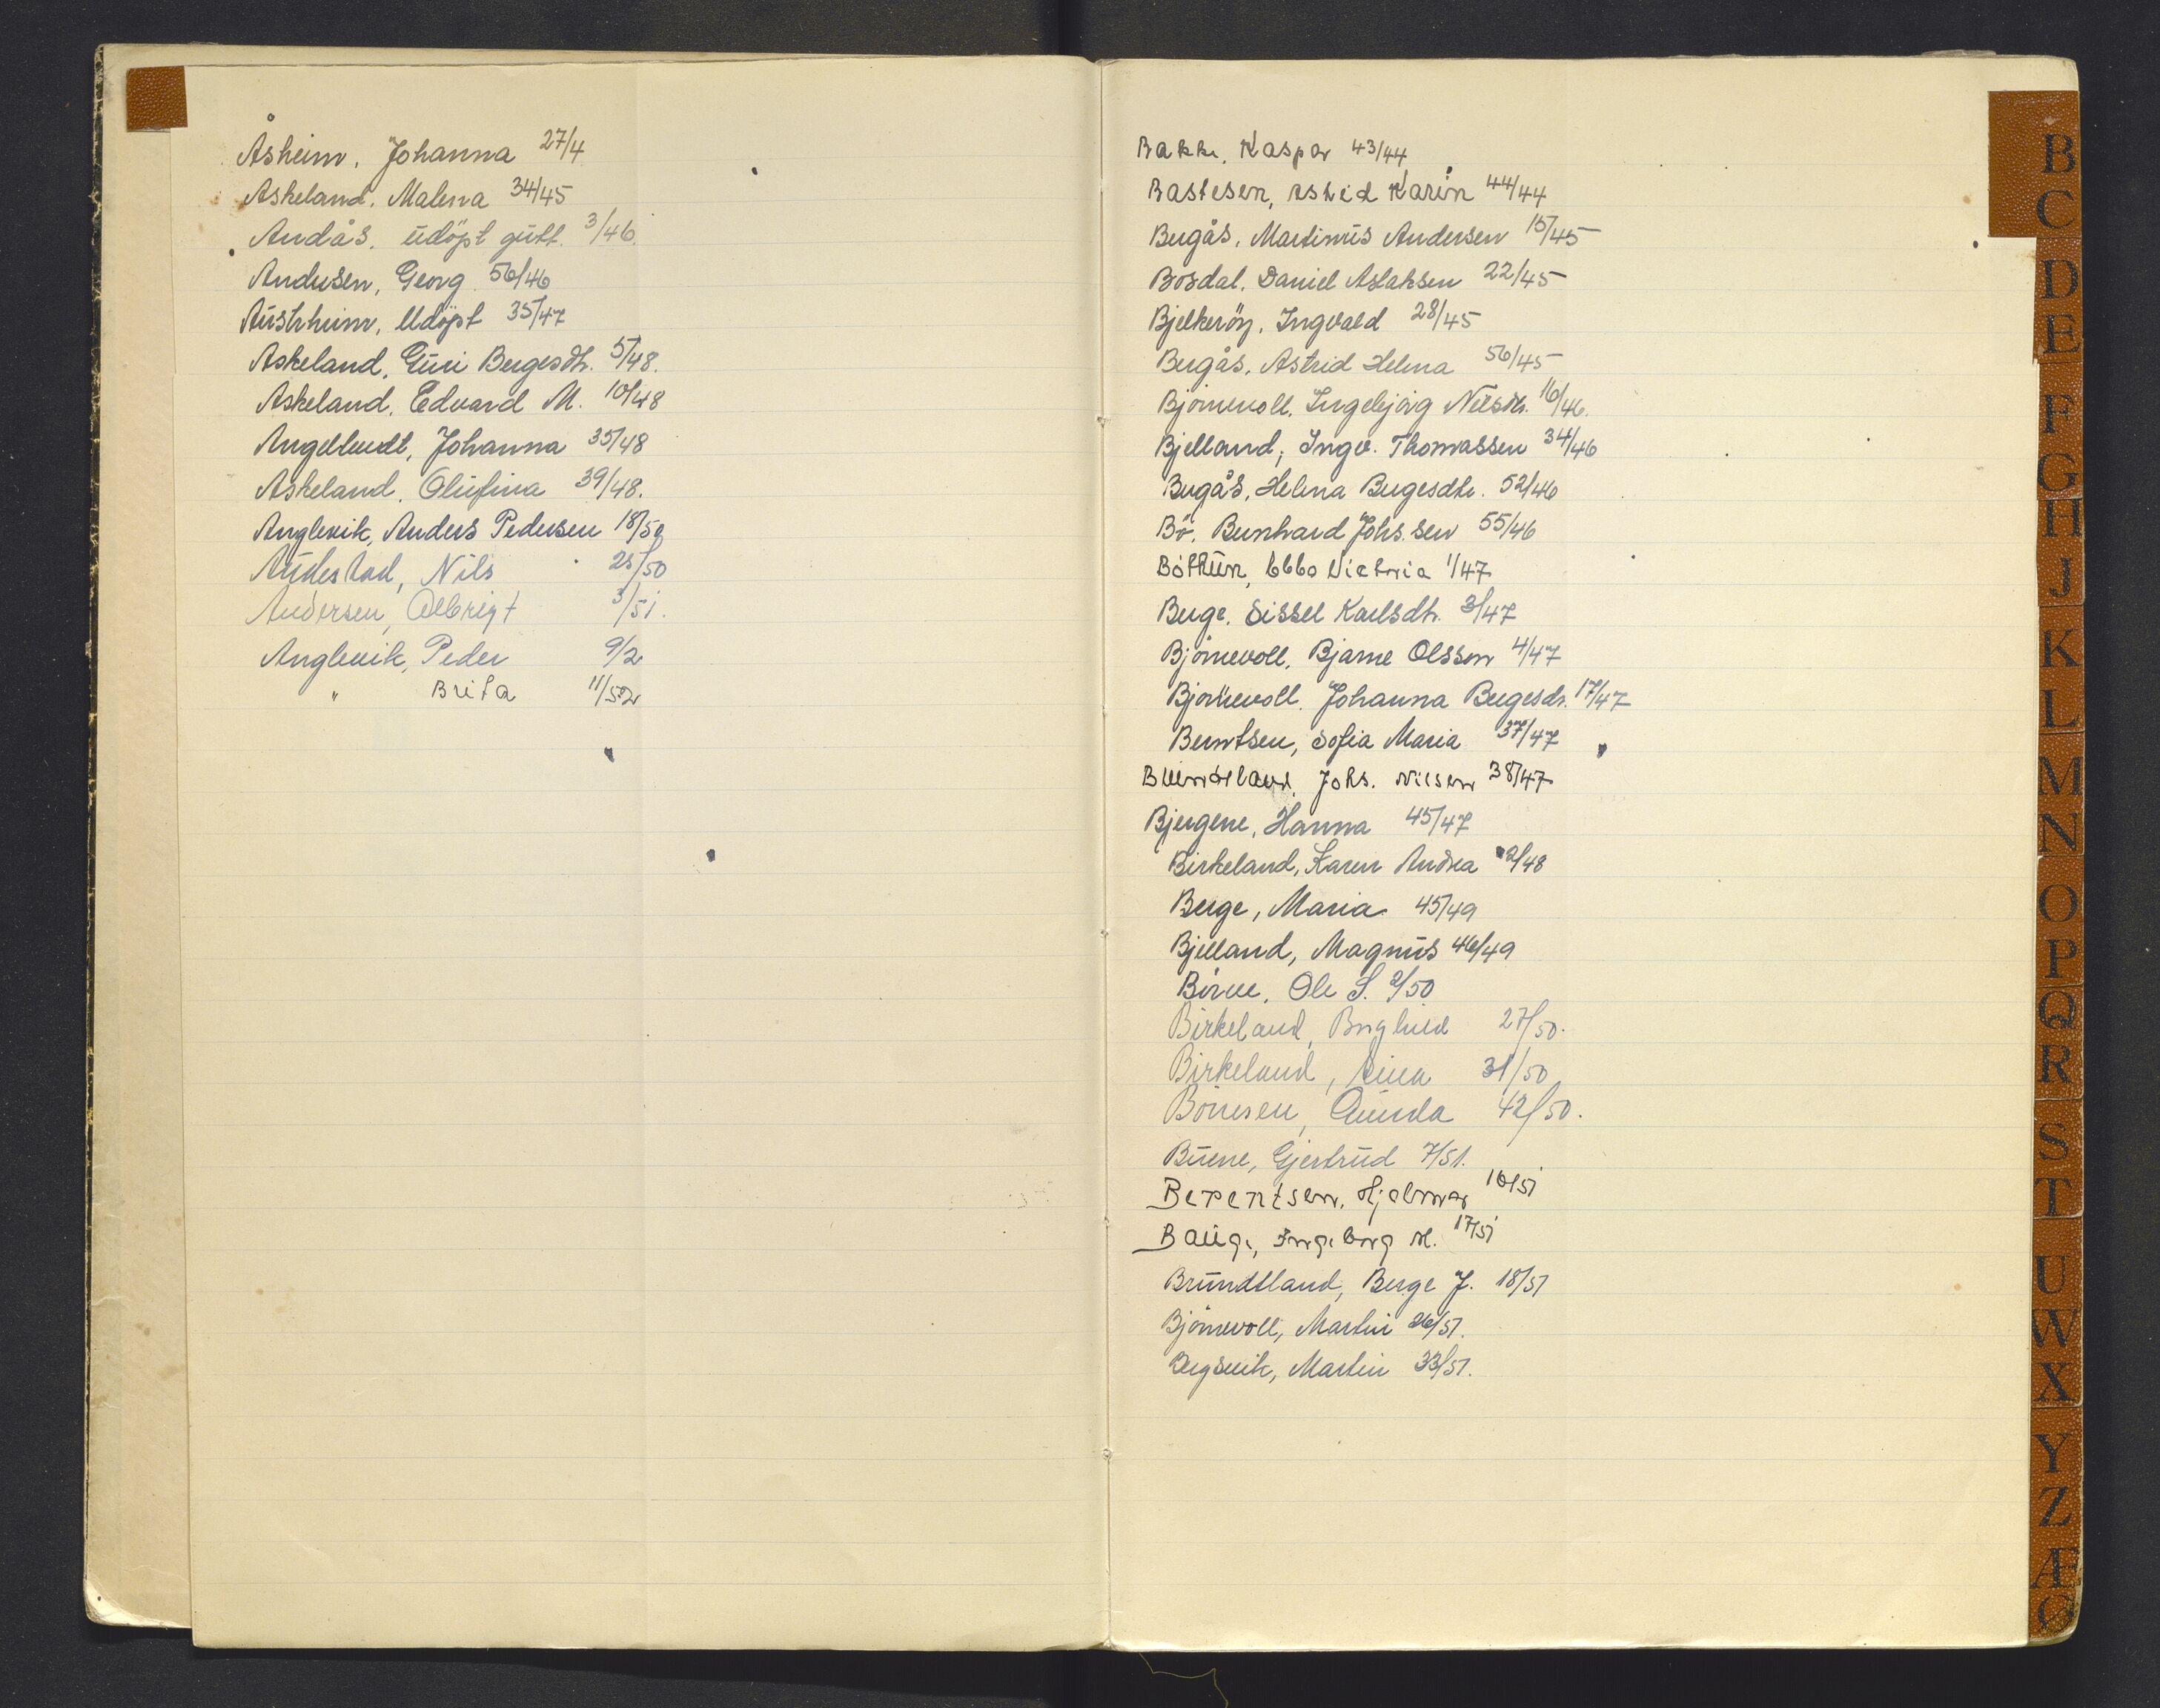 Åsheim, Johanna 27/4
Askeland, Malena 34/45
Andås, udöpt gutt. 3/46.
Andersen, Georg 56/46
Austrheim, Udöpt 35/47
Askeland, Guri Bergesdtr. 5/48.
Askeland, Edvard M. 10/48
Angeltveit, Johanna 35/48
Askeland, Olufina 39/48.
Anglevik, Anders Pedersen 18/50
Audestad, Nils 25/50
Andersen, Albrigt 3/51.
Anglevik, Peder 9/2
" Brita 11/52
Bakke, Kaspar 43/44
Bastesen, Astrid Karin 44/44
Bergås, Martinus Andersen 15/45
Bordal, Daniel Aslaksen 22/45
Bjelkeröy, Ingvald 28/45
Bergås, Astrid Helena 56/45
Björnevoll, Ingebjörg Nilsdtr. 16/46.
Bjelland, Ingv. Thomassen 34/46
Bergås, Helena Bergesdtr. 52/46
Bö, Bernhard Johs.sen 55/46
Böthun, Ebba Victoria 1/47
Berge, Sissel Karlsdtr. 3/47
Björnevoll, Bjarne Olsson 4/47
Björnevoll, Johanna Bergesdr. 17/47
Berntsen, Sofia Maria 37/47
Johs. Nilsen 38/47
Bjergene, Hanna 45/47
Birkeland, Karen Andrea 2/48
Berge, Maria 45/49
Bjelland, Magnus 46/49
Börve, Ole S. 2/50
Birkeland, 27/50.
Birkeland, 31/50
Börnesen, Gunda 42/50.
Buene, Gjertrud 7/51.
Berentsen, Hjalmar 10/51
Bauge, Ingeborg M. 17/51
Brundtland, Berge J. 18/51
Björnevoll, Martin 26/51.
Bergsvik, Martin 33/51.
B
C
D
E
F
G
H
J
K
L
M
N
O
P
Q
R
S
T
U
W
X
Y
Z
Æ
Ø